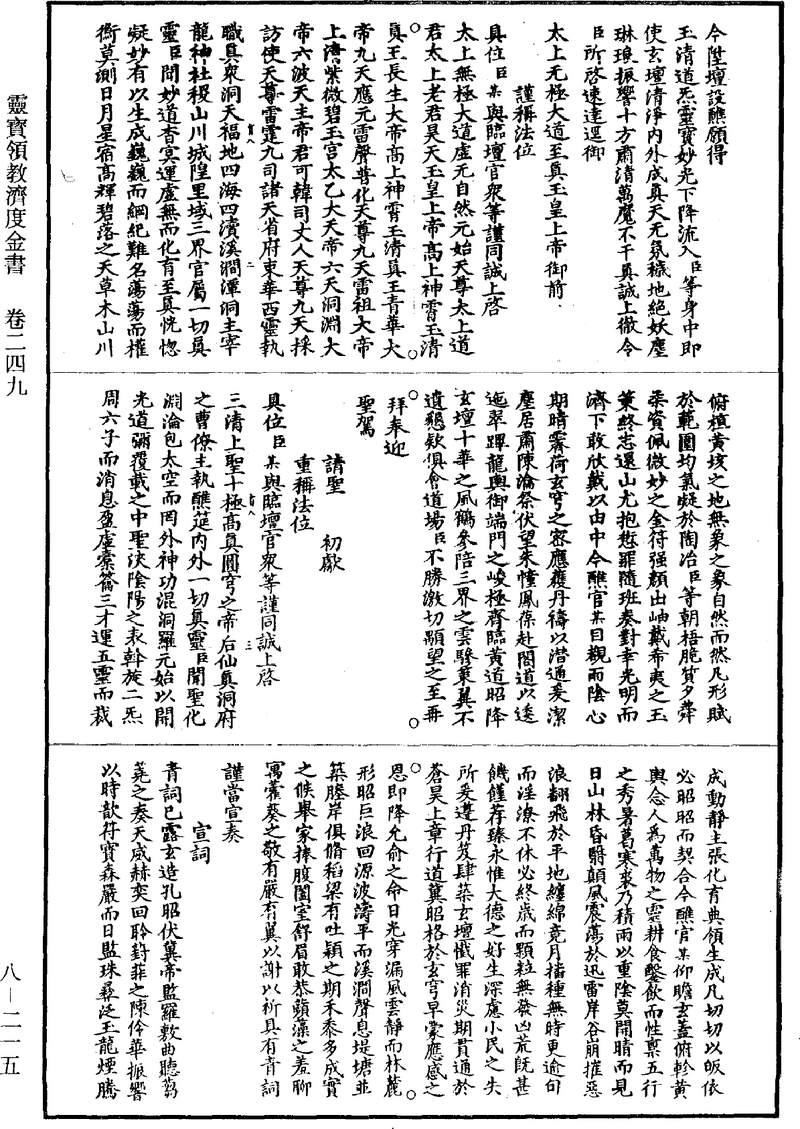 今陞壇設醮願得
玉清道炁靈寶妙光下降流入臣等身中即
使玄壇清淨內外成真天无氛穢地絶妖塵
琳琅振響十方肅清萬魔不干真誠上徹令
臣所啓速達逕御
太上无極大道至真玉皇上帝御前
謹稱法位
具位臣某與臨壇官衆等謹同誠上啓
太上無極大道虛无自然元始天尊太上道
君太上老君昊天玉皇上帝高上神霄玉清
真王長生大帝高上神霄玉清真王青華大
帝九天應元雷聲普化天尊九天雷祖大帝
上清紫微碧玉宮太乙大天帝六天洞淵大
帝六波天主帝君可韓司丈人天尊九天採
訪使天尊雷霆九司諸天省府東華西靈執
職真衆洞天福地四海四瀆溪澗潭洞主宰
龍神社稷山川城隍里域三界官屬一切真
靈臣聞妙道杳冥運虛無而化育至真恍惚
疑妙有以生成巍巍而綱紀難名蕩蕩而權
衡莫測日月星宿高輝碧落之天草木山川
俯植黄垓之地無象之象自然而然凡形賦
於範圍均氣凝於陶冶臣等朝梧脆質夕蕣
柔資佩微妙之金符强顏出岫戴希夷之玉
策終志還山尤抱愆罪隨班奏對幸光明而
濟下敢欣戴以由中今醮官某目觀而陰心
期晴霽荷玄穹之密應蘐丹禱以潛通爰潔
塵居肅陳瀹祭伏望朱幢鳳葆赴閤道以逶
迤翠蹕龍輿御端門之峻極齊臨黄道昭降
玄壇十華之風鶴參陪三界之雲驂冀翼不
遺懇欵俱會道場臣不勝激切顒望之至再
拜奉迎
聖駕
請聖　初獻
重稱法位
具位臣某與臨壇官衆等謹同誠上啓
三清上聖十極高真圓穹之帝后仙真洞府
之曹僚主執醮筵內外一切真靈臣聞聖化
淵淪包太空而罔外神功混洞羅元始以開
光道彌覆載之中聖決陰陽之表斡旋二炁
周六子而消息盈虛橐籥三才運五靈而裁
成動靜主張化育典領生成凡切切以皈依
必昭昭而契合今醮官某仰瞻玄蓋俯軫黄
輿念人爲萬物之靈耕食鑿飲而性稟五行
之秀暑葛寒裘乃積雨以重陰莫開晴而見
日山林昏翳顛風震蕩於迅雷岸谷崩摧惡
浪翻飛於平地纏綿竟月播種無時更逾旬
而淫潦不休必終歲而顆粒無發凶荒既甚
饑饉荐臻永惟大德之好生深慮小民之失
所爰遵丹笈肆築玄壇懺罪消災期貫通於
蒼昊上章行道冀昭格於玄穹早蒙應感之
恩即降允俞之命日光穿漏風雲靜而林麓
形昭巨浪回源波濤平而溪澗聲息堤塘並
築塍岸俱脩稻粱有吐穎之期禾黍多成實
之候舉家捧腹闔室舒眉敢恭蘋藻之羞聊
寓藿葵之敬有嚴有翼以謝以祈具有青詞
謹當宣奏
宣詞
青詞已露玄造孔昭伏冀帝監羅敷曲聽芻
蕘之奏天威赫奕回聆葑菲之陳伶華振響
以時歆符寶森嚴而日監珠彞泛玉龍煙騰
靈寶領教濟度金書　卷二四九
八－二一五